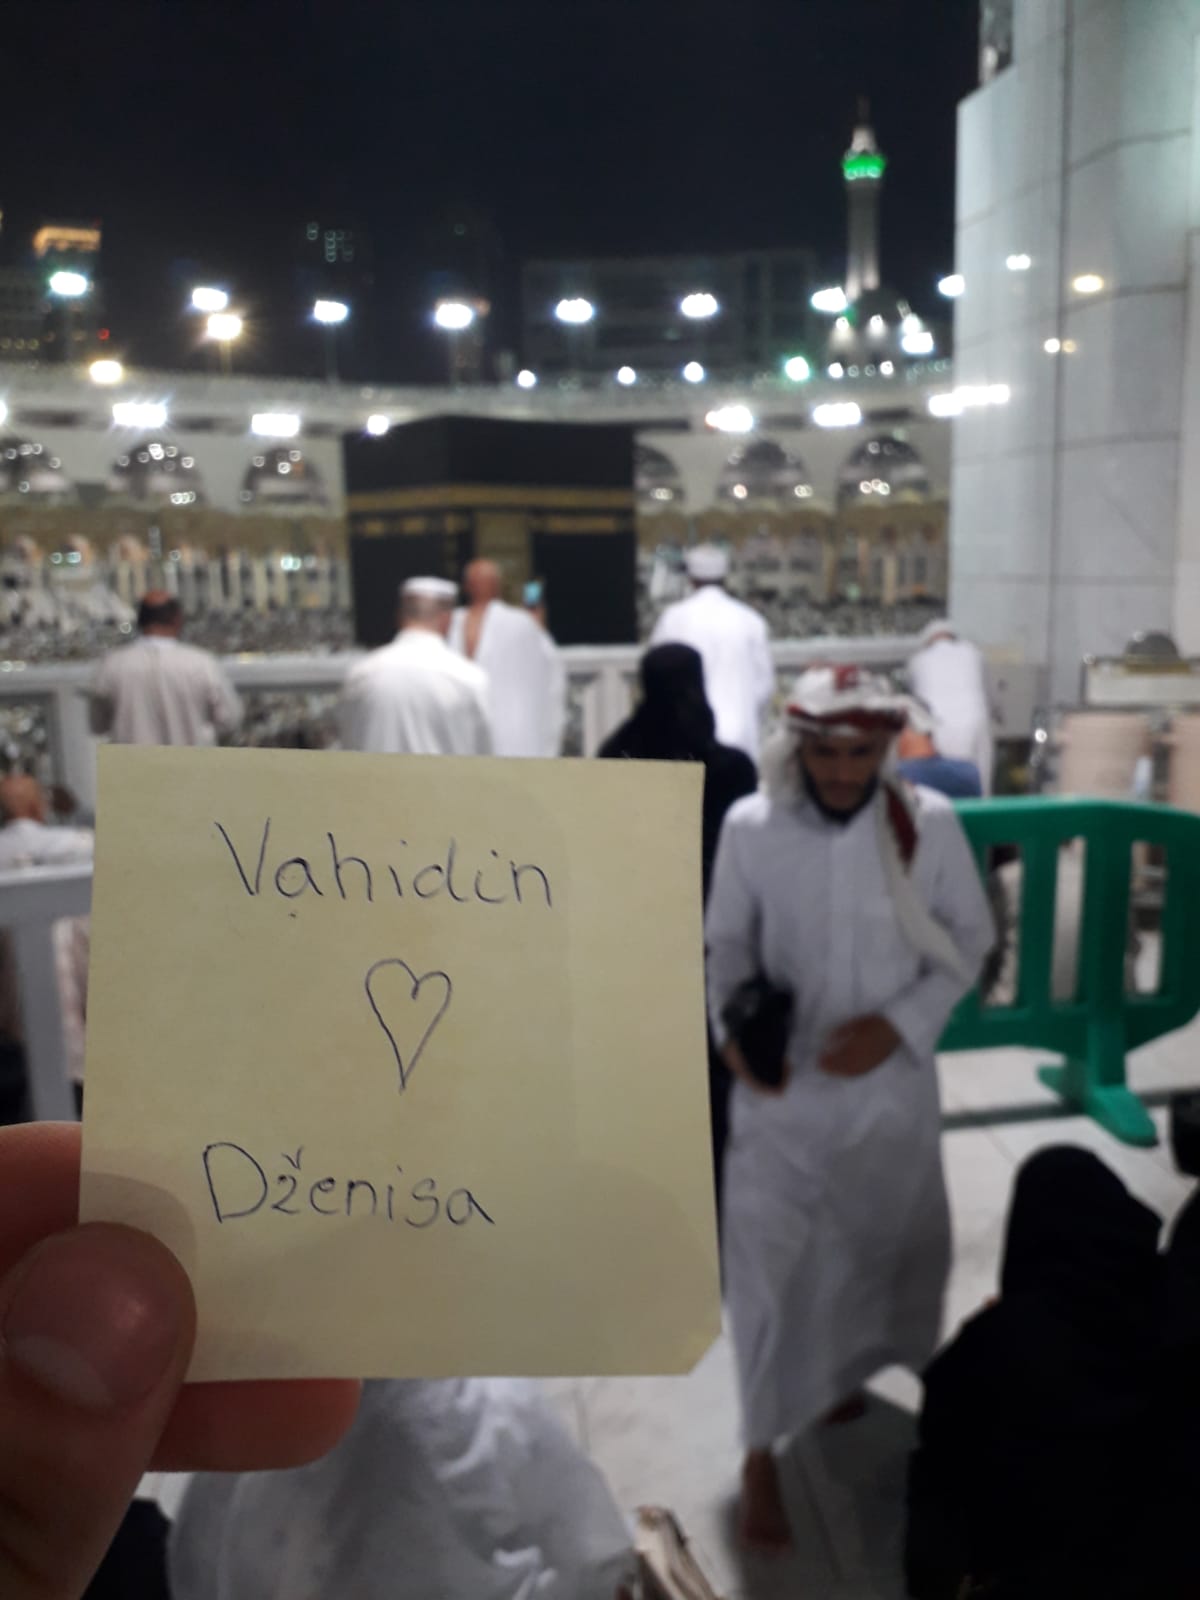 Vahidin
Dženisa